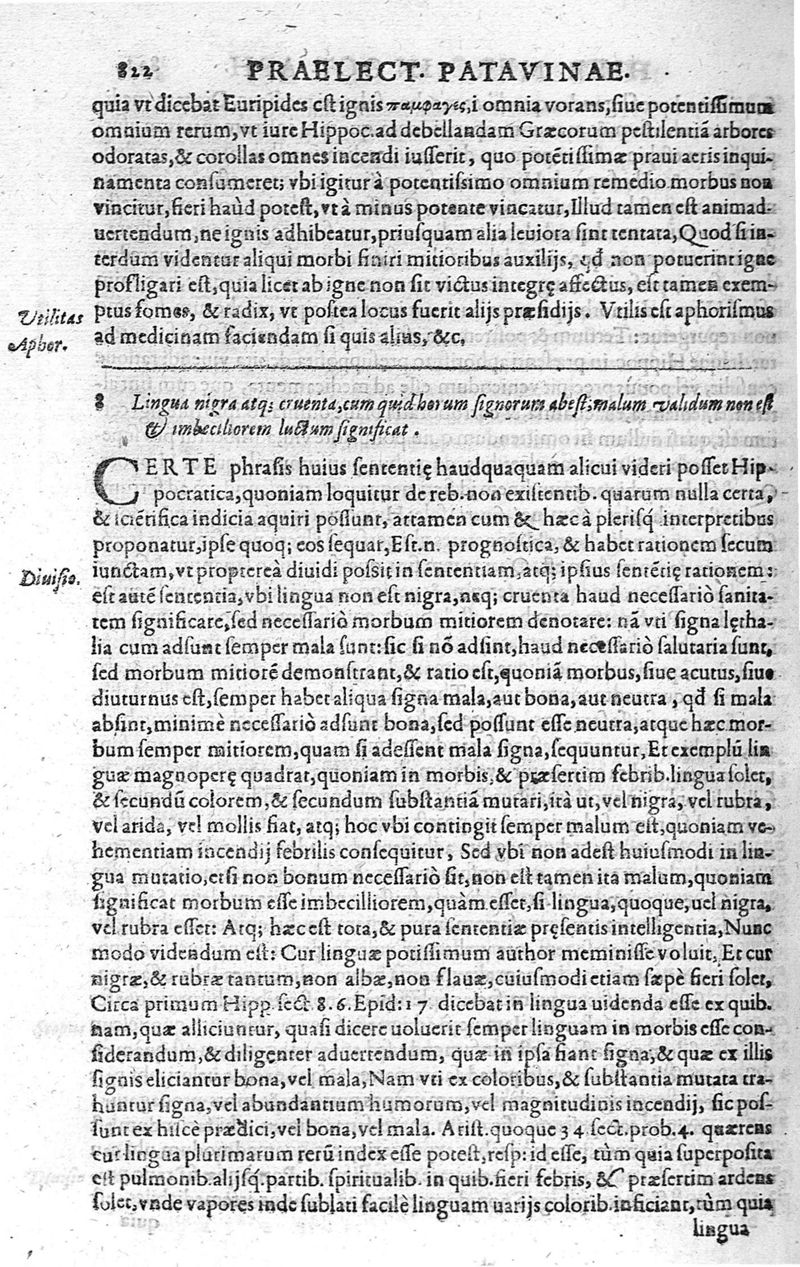 822 PRAELECT. PATAVINAE.
quia vt dicebat Euripides est ignis παμφαγες, i omnia vorans, siue potentissimum
omnium rerum, vt iure Hippoc. ad debellandam Græcorum pestilentiā arbores
odoratas, & corollas omnes incendi iusserit, quo potētissimæ praui aeris inqui-
namenta consumeret; vbi igitur à potentissimo omnium remedio morbus non
vincitur, fieri haùd potest, vt à minus potente vincatur, Illud tamen est animad-
uertendum, ne ignis adhibeatur, priusquam alia leuiora sint tentata, Quod si in-
terdum videntur aliqui morbi finiri mitioribus auxilijs, qđ non potuerint igne
profligari est, quia licet ab igne non sit victus integrę affectus, est tamen exem-
ptus fomes, & radix, vt postea locus fuerit alijs præsidijs. Vtilis est aphorismus
ad medicinam faciendam si quis alius, &c.
Vtilitas
Aphor.
8 Lingua nigra atq; cruenta, cum quid horum signorum abest; malum validum non est
& imbeciliorem luctum significat.
CERTE phrasis huius sententię haudquaquam alicui videri posset Hip-
pocratica, quoniam loquitur de reb. non existentib. quarum nulla certa,
& sciētifica indicia aquiri possunt, attamen cum & hæc à plerisq́ interpretibus
proponatur, ipse quoq; eos sequar, Est. n. prognostica, & habet rationem secum
iunctam, vt proptereà diuidi possit in sententiam, atq; ipsius sentētię rationem:
Diuisio.
est autē sententia, vbi lingua non est nigra, neq; cruenta haud necessariò sanita-
tem significare, sed necessariò morbum mitiorem denotare: nā vti signa lętha-
lia cum adsunt semper mala sunt: sic si nō adsint, haud necessariò salutaria sunt,
sed morbum mitiorē demonstrant, & ratio est, quoniā morbus, siue acutus, siue
diuturnus est, semper habet aliqua signa mala, aut bona, aut neutra, qđ si mala
absint, minimè necessariò adsunt bona, sed possunt esse neutra, atque hæc mor-
bum semper mitiorem, quam si adessent mala signa, sequuntur, Et exemplū lin
guæ magnoperę quadrat, quoniam in morbis, & præsertim febrib. lingua solet,
& secundū colorem, & secundum substantiā mutari, ità ut, vel nigra, vel rubra,
vel arida, vel mollis fiat, atq; hoc vbi contingit semper malum est, quoniam ve-
hementiam incendij febrilis consequitur, Sed vbi non adest huiusmodi in lin-
gua mutatio, etsi non bonum necessariò sit, non est tamen ità malum, quoniam
significat morbum esse imbecilliorem, quàm esset, si lingua, quoque, uel nigra,
vel rubra esset: Atq; hæc est tota, & pura sententiæ pręsentis intelligentia, Nunc
modo videndum est: Cur linguæ potissimum author meminisse voluit, Et cur
nigræ, & rubræ tantum, non albæ, non flauæ, cuiusmodi etiam sæpè fieri solet,
Circa primum Hipp. sect. 8. 6. Epid: 17 dicebat in lingua uidenda esse ex quib.
nam, quæ alliciuntur, quasi dicere uoluerit semper linguam in morbis esse con-
siderandum, & diligenter aduertendum, quæ in ipsa fiant signa, & quæ ex illis
signis eliciantur bona, vel mala, Nam vti ex coloribus, & substantia mutata tra-
huntur signa, vel abundantium humorum, vel magnitudinis incendij, sic pos-
sunt ex hisce prædici, vel bona, vel mala. Arist. quoque 34 sect. prob. 4. quærens
cur lingua plurimarum rerū index esse potest, resp: id esse, tùm quia superposita
est pulmonib. alijsq́. partib. spiritualib. in quib. fieri febris, & præsertim ardens
solet, vnde vapores inde sublati facilè linguam uarijs colorib. inficiant, tùm quia
lingua